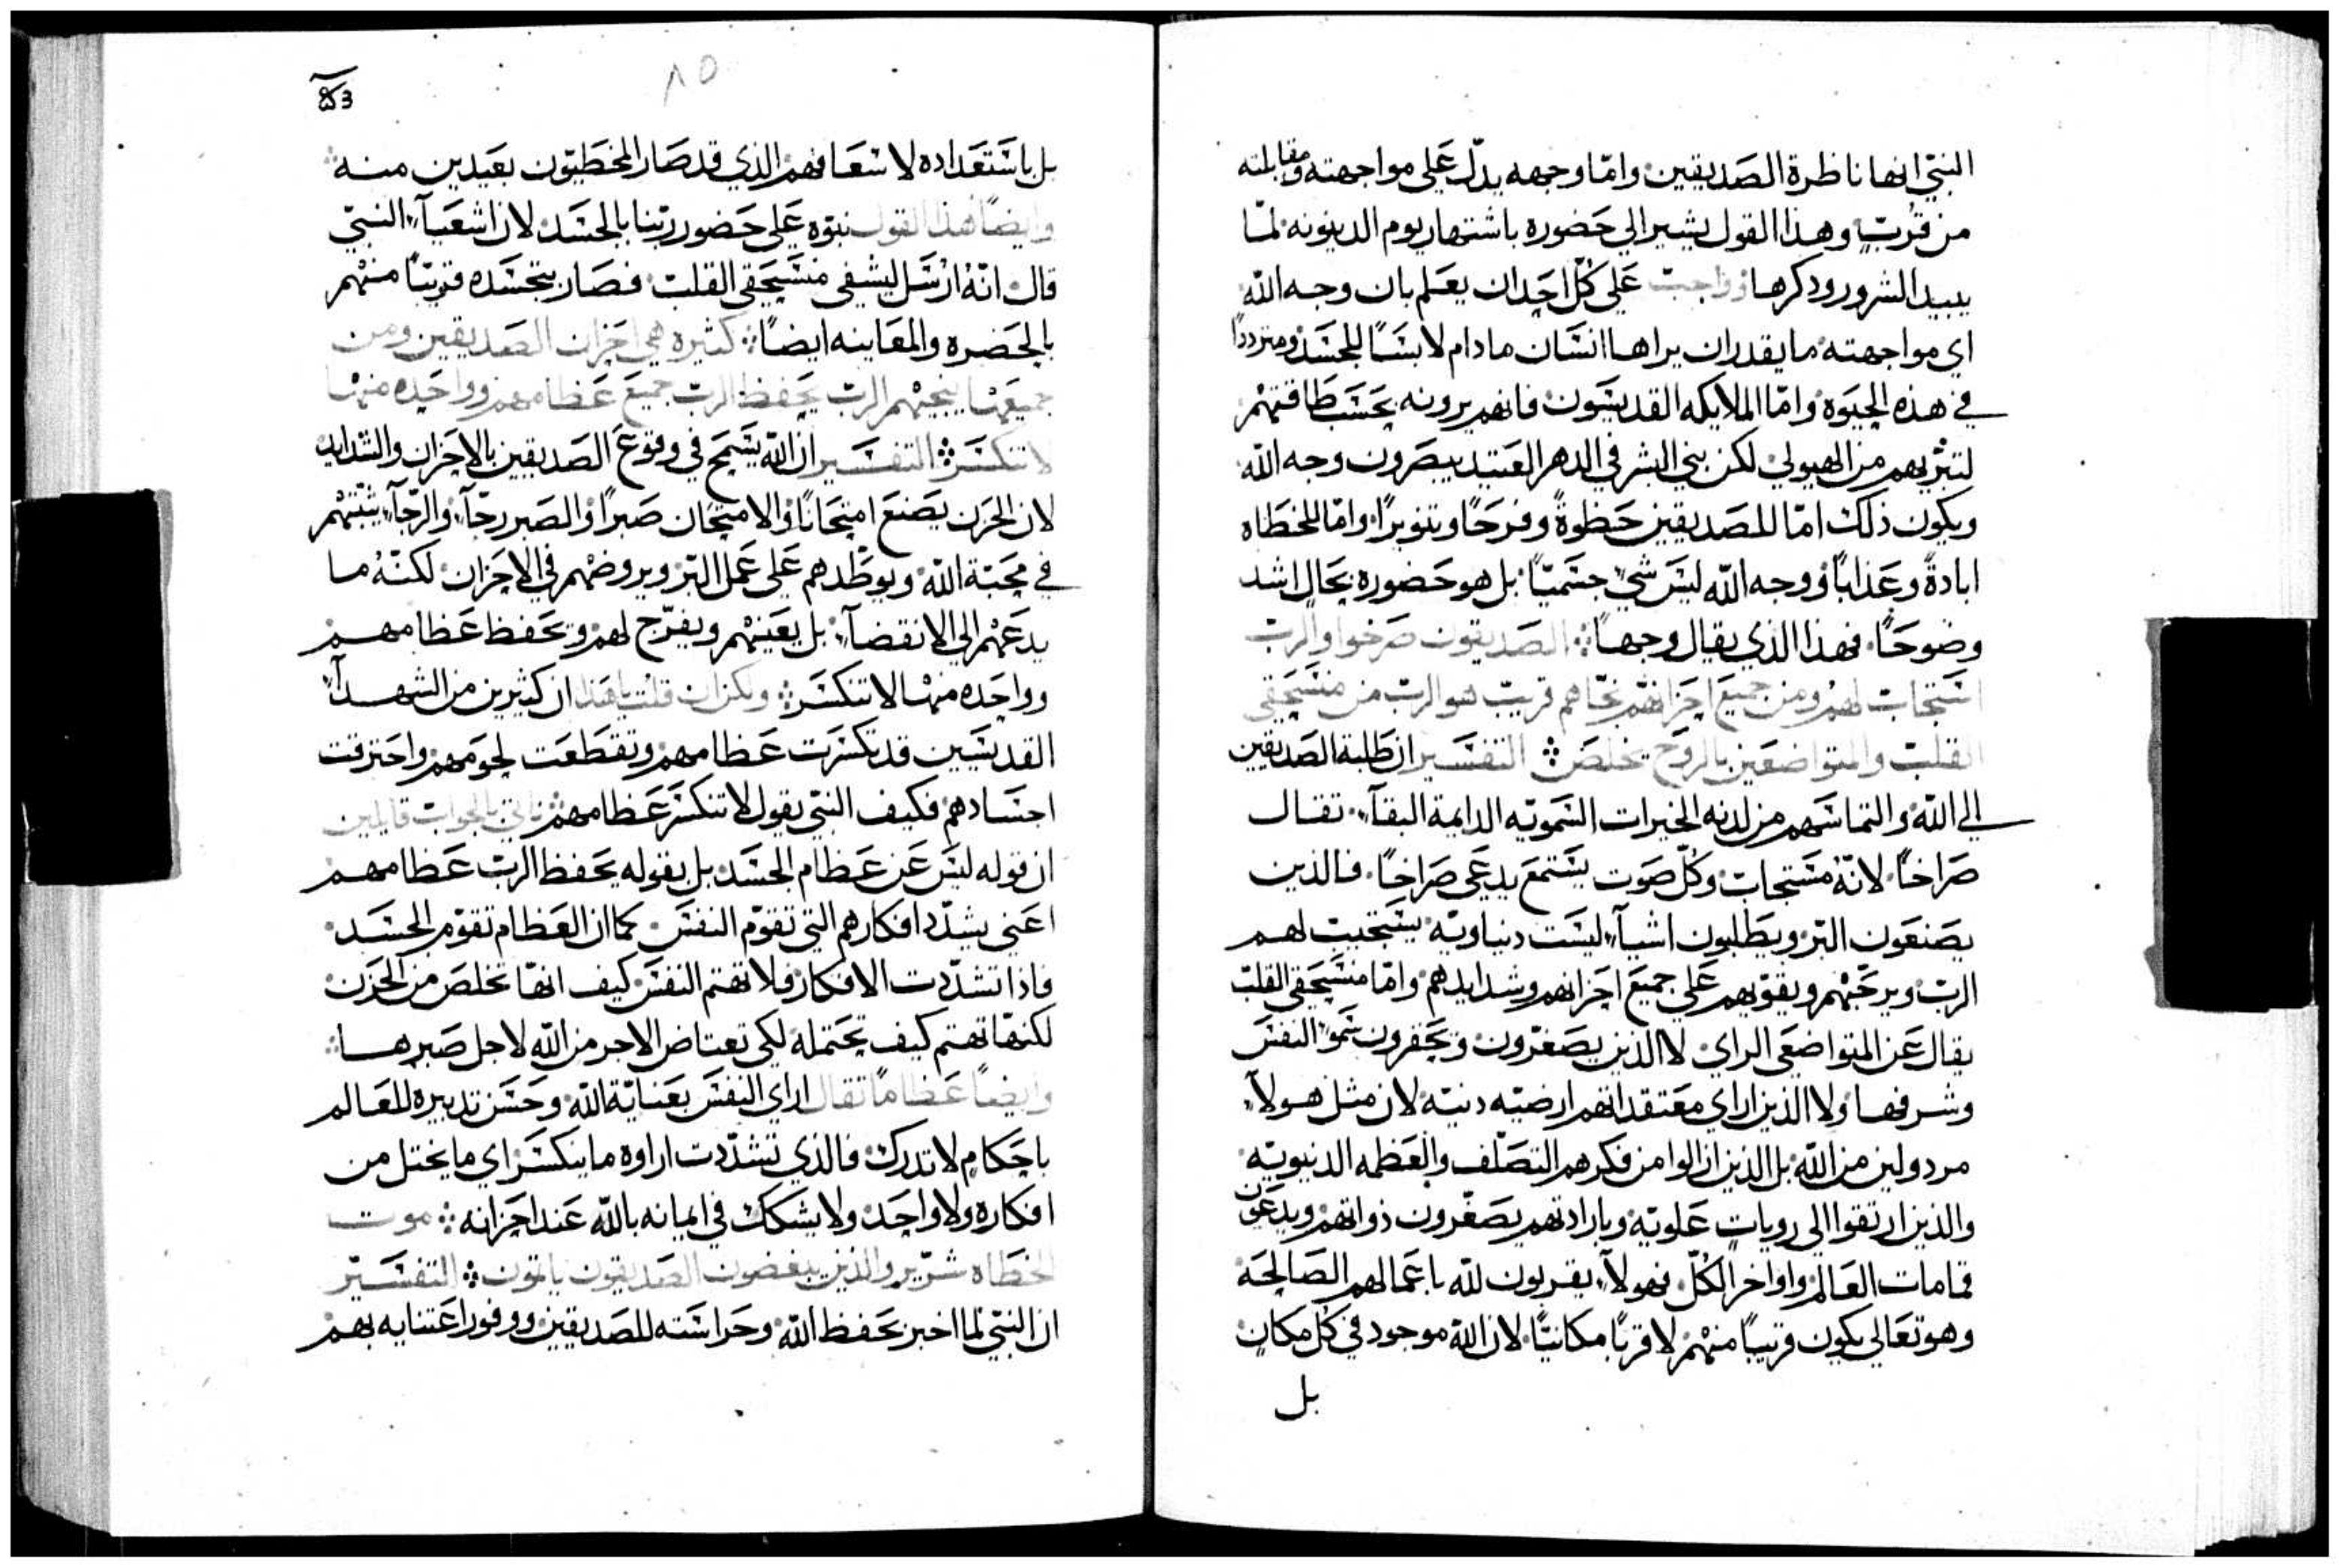 النبي انها ناظرة الصديقين وامّا وجهه يدلّ على مواجهته ومقابلته
من قربٍ وهذا القول يشير الى حضوره باشتهار يوم الدينونه لمّا
يبيد الشرور وذكرها وواجبٌ على كلّ احدٍ ان يعلم بان وجه الله
اي مواجهته ما يقدر ان يراها انسان ما دام لابسًا للجسد ومترددًا
في هذه الحيوة وامّا الملايكه القديسون فانهم يرونه بحسب طاقتهم
لتنزيههم من الهيولي لكن بني البشر في الدهر العتيد يبصرون وجه الله
ويكون ذلك امّا للصديقين حظوةً وفرحًا وتنويرًا وامّا للخطاه
ابادةً وعذابًا ووجه الله ليس شيء جسميًّا بل هو حضوره بحالٍ اشد
وضوحًا فهذا الذي يقال وجهاً الصديقون صرخوا والرب
استجاب لهم ومن جميع احزانهم نجّاهم قريبٌ هو الرب من منسحقي
القلب والمتواضعين بالروح يخلص التفسير ان طلبة الصديقين
الى الله والتماسهم من لدنه الخيرات السمويه الدايمة البقآء تقال
صراخًا لانّهُ مستجاب وكلّ صوت يستمع يدعى صراخًا فالذين
يصنعون البرّ ويطلبون اشيآء ليست دنياويّه يستجيب لهم
الرب ويرحّيهم ويقوّيهم على جميع احزانهم وشدايدهم وامّا منسحقي القلب
يقال عن المتواضعي الراي لا الذين يصغّرون ويحقرون سموّ النفس
وشرفها ولا الذين اراي معتقداتهم ارضيّه دنيّه لان مثل هولآء
مردولين من الله بل الذين ازالوا من فكرهم التصلّف والعظمه الدنيويّه
والذين ارتقوا الى رويات علويّه وبارادتهم يصغّرون ذواتهم ويدعون
قمامات العالم واواخر الكلّ فهولآء يقربون لله باعمالهم الصالحة
وهو تعالى يكون قريبًا منهم لا قربًا مكانيًّا لان الله موجود في كل مكانٍ
بل
٨٥
بل باستعداده لاسعافهم الذي قد صار المخطيّون بعيدين منه
وايضًا هذا القول نبوّه على حضور ربّنا بالجسد لان اشعيآء النبي
قال انّهُ ارسل ليشفي منسحقي القلب فصار بتجسده قريبًا منهم
بالحضره والمعاينه ايضًا كثيره هي احزان الصديقين ومن
جميعها ينجّيهم الرب يحفظ الرب جميع عظامهم وواحده منها
لا تنكسر التفسير ان الله يسمح في وقوع الصديقين بالاحزان والشدايد
لان الحزن يصنع امتحانًا والامتحان صبرًا والصبر رجآء والرّجآء يثبّتهم
في محبّة الله ويوطّدهم على عمل البرّ ويروضهم في الاحزان لكنّهُ ما
يدعهم الى الانقضآء بل يعينهم ويفرّج لهم ويحفظ عظامهم
وواحده منها لا تنكسر ولكن ان قلت يا هذا ان كثيرين من الشهدآء
القديسين قد تكسّرت عظامهم وتقطّعت لحومهم واحترقت
اجسادهم فكيف النبي يقول لا تنكسر عظامهم ناتي بالجواب قايلين
ان قوله ليس عن عظام الجسد بل بقوله يحفظ الرب عظامهم
اعني يشدّد افكارهم التي تقوّم النفس كما ان العظام تقوّم الجسد
فاذا تشدّدت الافكار فلا تهتم النفس كيف انهّا تخلص من الحزن
لكنّها تهتم كيف تحتمله لكي تعتاض الاجر من الله لاجل صبرها
وايضًا عظامًا تقال اراي النفس بعناية الله وحسن تدبيره للعالم
باحكامٍ لا تدرك فالذي تشدّدت اراوه ما ينكسر اي ما يختل من
افكاره ولا واحد ولا يشكك في ايمانه بالله عند احزانه موت
الخطاه شرّير والذين يبغضون الصديقون ياثمون التفسير
ان النبي لما اخبر بحفظ الله وحراسته للصديقين ووفور اعتنايه بهم